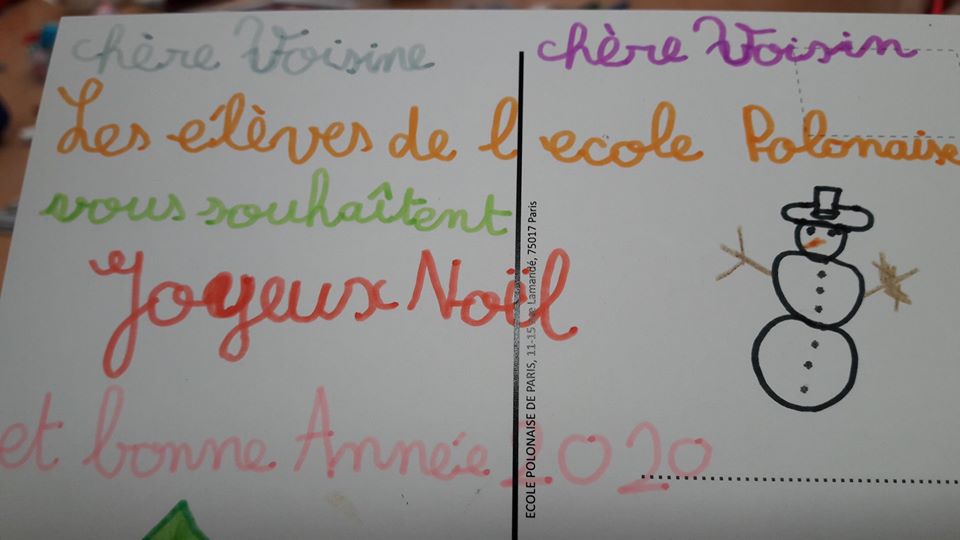 chère Voisine chère Voisin
Les élèves de l'ecole Polonaise
vous souhaîtent
Joyeux Noël
et bonne Année 2020
ECOLE POLONAISE DE PARIS, 11-15 rue Lamandé, 75017 Paris